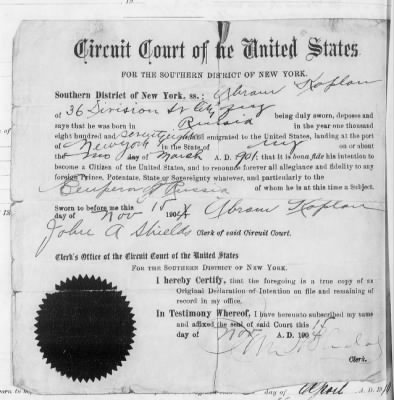 Circuit Court of the United States
FOR THE SOUTHERN DISTRICT OF NEW YORK.
Southern District of New York, ss.: Abram Kaplan
of 36 Division St City being duly sworn, deposes and
says that he was born in Russia in the year one thousand
eight hundred and Seventy eight emigrated to the United States, landing at the port
of New York in the State of NY on or about
the day of March A. D. 1901: that it is bona fide his intention to
become a Citizen of the United States, and to renounce forever all allegiance and fidelity to any
foreign Prince, Potentate, State or Sovereignty whatever, and particularly to the
Emperor of Russia of whom he is at this time a Subject.
Sworn to before me this 15
day of Nov 190 Abram Kaplan
John A Shields Clerk of said Circuit Court.
Clerk's Office of the Circuit Court of the United States
FOR THE SOUTHERN DISTRICT OF NEW YORK.
I hereby Certify, that the foregoing is a true copy of an
Original Declaration of Intention on file and remaining of
record in my office.
In Testimony Whereof, I have hereunto subscribed my name
and affixed the seal of said Court this 15
day of Nov A. D. 190
Clerk.
day of April A. D.